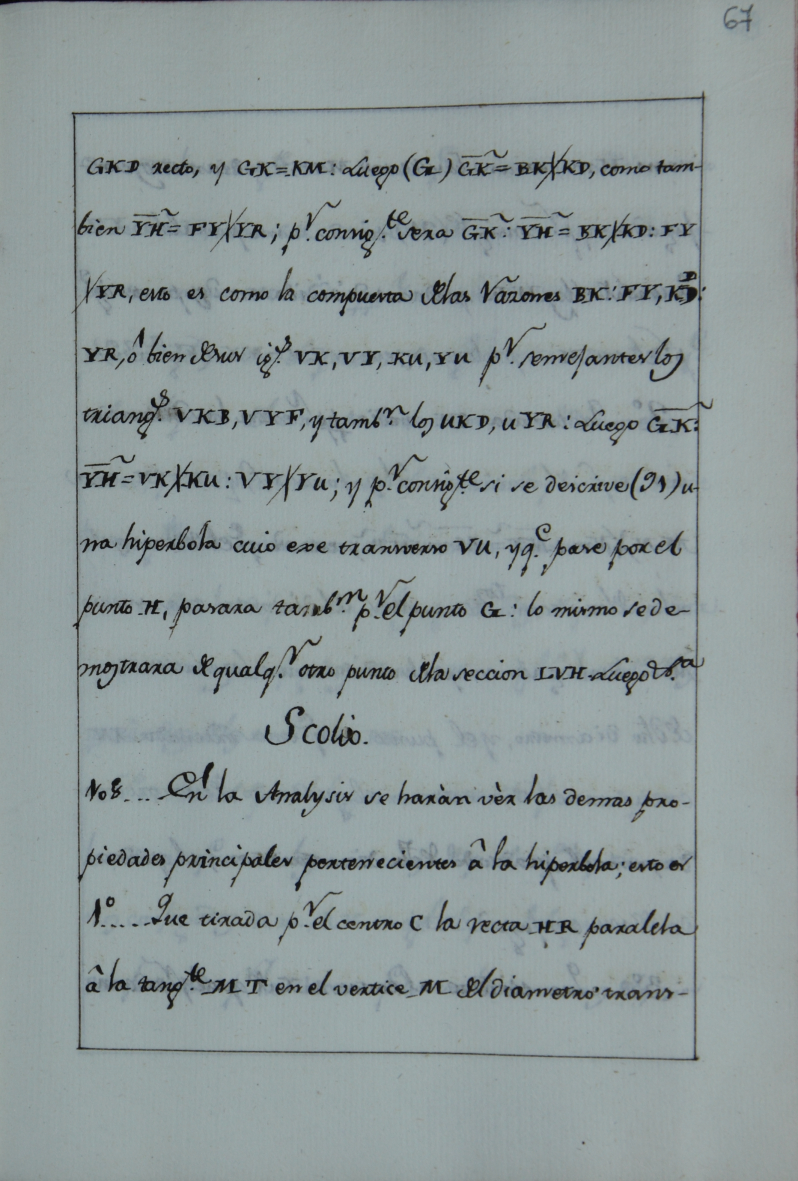 67
GKD recto, y GK=KM: Luego (G) GK²= BK×KD, como tam-
bien YH²= FY×YR; p.r consig.te sera GK²: YH²= BK×KD: FY
×YR, esto es como la compuesta de las Razones BK: FY, KD:
YR, ô bien de sus ig.s VK, VY, KU, YU p.r semejantes los
triang.s VKB, VYF, y tamb.n los UKD, UYR: Luego GK²:
YH²= VK×KU: VY×YU; y p.r consig.te si se descrive (91) u-
na hiperbola cuio exe transverso VU, y q.e pase por el
punto H, pasara tamb.n p.r el punto G: lo mismo se de-
mostrara de qualq.r otro punto de la seccion LVH. Luego &.a
Scolio.
108... En la Analysis se haràn vèr las demas pro-
piedades principales pertenecientes â la hiperbola; esto es
1.º.... Que tirada p.r el centro C la recta HR paralela
â la tang.te MT en el vertice M del diametro trans-